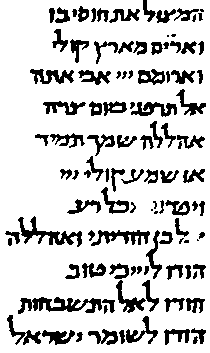 המציל את חוסי בו
וארים מארץ קולי
וארומם ייי אבי אתה
אל תרפני ביום צרה
אהללה שמך תמיד
אז שמע קולי ייי
רע
הודיתי ואהללה
הודו לייי כי טוב
הודו לאל התשבחות
הודו לשומר ישראל